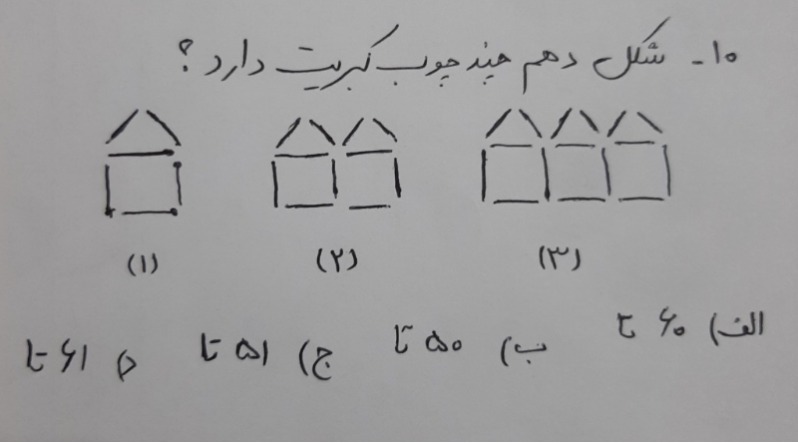 ۱۰- شکل دهم چند چوب کبریت دارد؟
(۱) (۲) (۳)
الف) ۶۰ تا ب) ۵۰ تا ج) ۵۱ تا د) ۶۱ تا